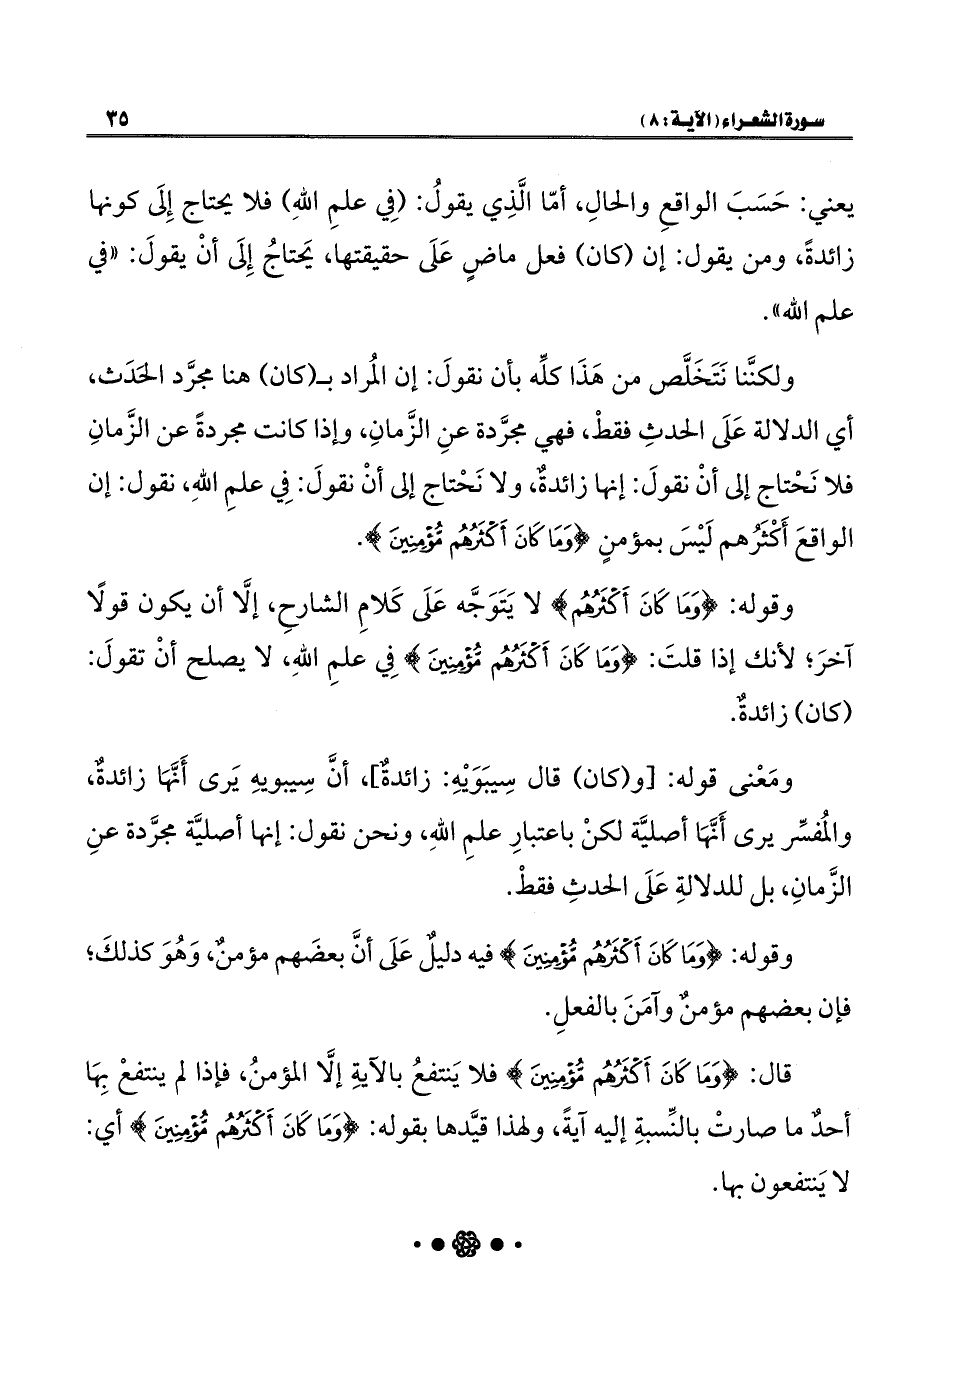 سورة الشعراء (الآية: ٨)
٣٥
يعني: حَسَبَ الواقعِ والحالِ، أمّا الَّذِي يقولُ: (فِي علمِ اللهِ) فلا يحتاج إِلَى كونها
زائدةً، ومن يقول: إن (كان) فعل ماضٍ عَلَى حقيقتها، يَحتاجُ إِلَى أنْ يقولَ: «في
علم الله».
ولكنَّنا نَتَخَلَّص من هَذَا كلِّه بأن نقولَ: إن المُراد بـ(كان) هنا مجرَّد الحَدَث،
أي الدلالة عَلَى الحدثِ فقطْ، فهي مجرَّدة عنِ الزَّمانِ، وإذا كانت مجردةً عن الزَّمانِ
فلا نَحْتاج إلى أنْ نقولَ: إنها زائدةٌ، ولا نَحْتاج إلى أنْ نقولَ: فِي علمِ اللهِ، نقول: إن
الواقعَ أَكْثَرُهم لَيْسَ بمؤمنٍ ﴿وَمَا كَانَ أَكْثَرُهُم مُّؤْمِنِينَ﴾.
وقوله: ﴿وَمَا كَانَ أَكْثَرُهُم﴾ لا يَتَوَجَّه عَلَى كَلامِ الشارحِ، إلَّا أن يكون قولًا
آخرَ؛ لأنك إذا قلتَ: ﴿وَمَا كَانَ أَكْثَرُهُم مُّؤْمِنِينَ﴾ فِي علمِ اللهِ، لا يصلح أنْ تقولَ:
(كان) زائدةٌ.
ومَعْنى قوله: [و(كان) قال سِيبَوَيْهِ: زائدةٌ]، أنَّ سِيبويهِ يَرى أَنَّهَا زائدةٌ،
والمُفسِّر يرى أَنَّهَا أصليَّة لكنْ باعتبارِ علمِ اللهِ، ونحن نقول: إنها أصليَّة مجرَّدة عنِ
الزَّمانِ، بل للدلالةِ عَلَى الحدثِ فقطْ.
وقوله: ﴿وَمَا كَانَ أَكْثَرُهُم مُّؤْمِنِينَ﴾ فيه دليلٌ عَلَى أنَّ بعضَهم مؤمنٌ، وَهُوَ كذلكَ؛
فإن بعضهم مؤمنٌ وآمَنَ بالفعلِ.
قال: ﴿وَمَا كَانَ أَكْثَرُهُم مُّؤْمِنِينَ﴾ فلا يَنتفعُ بالآيةِ إلَّا المؤمنُ، فإذا لم ينتفعْ بِهَا
أحدٌ ما صارتْ بالنِّسبةِ إليه آيةً، ولهذا قيَّدها بقوله: ﴿وَمَا كَانَ أَكْثَرُهُم مُّؤْمِنِينَ﴾ أي:
لا يَنتفعون بها.